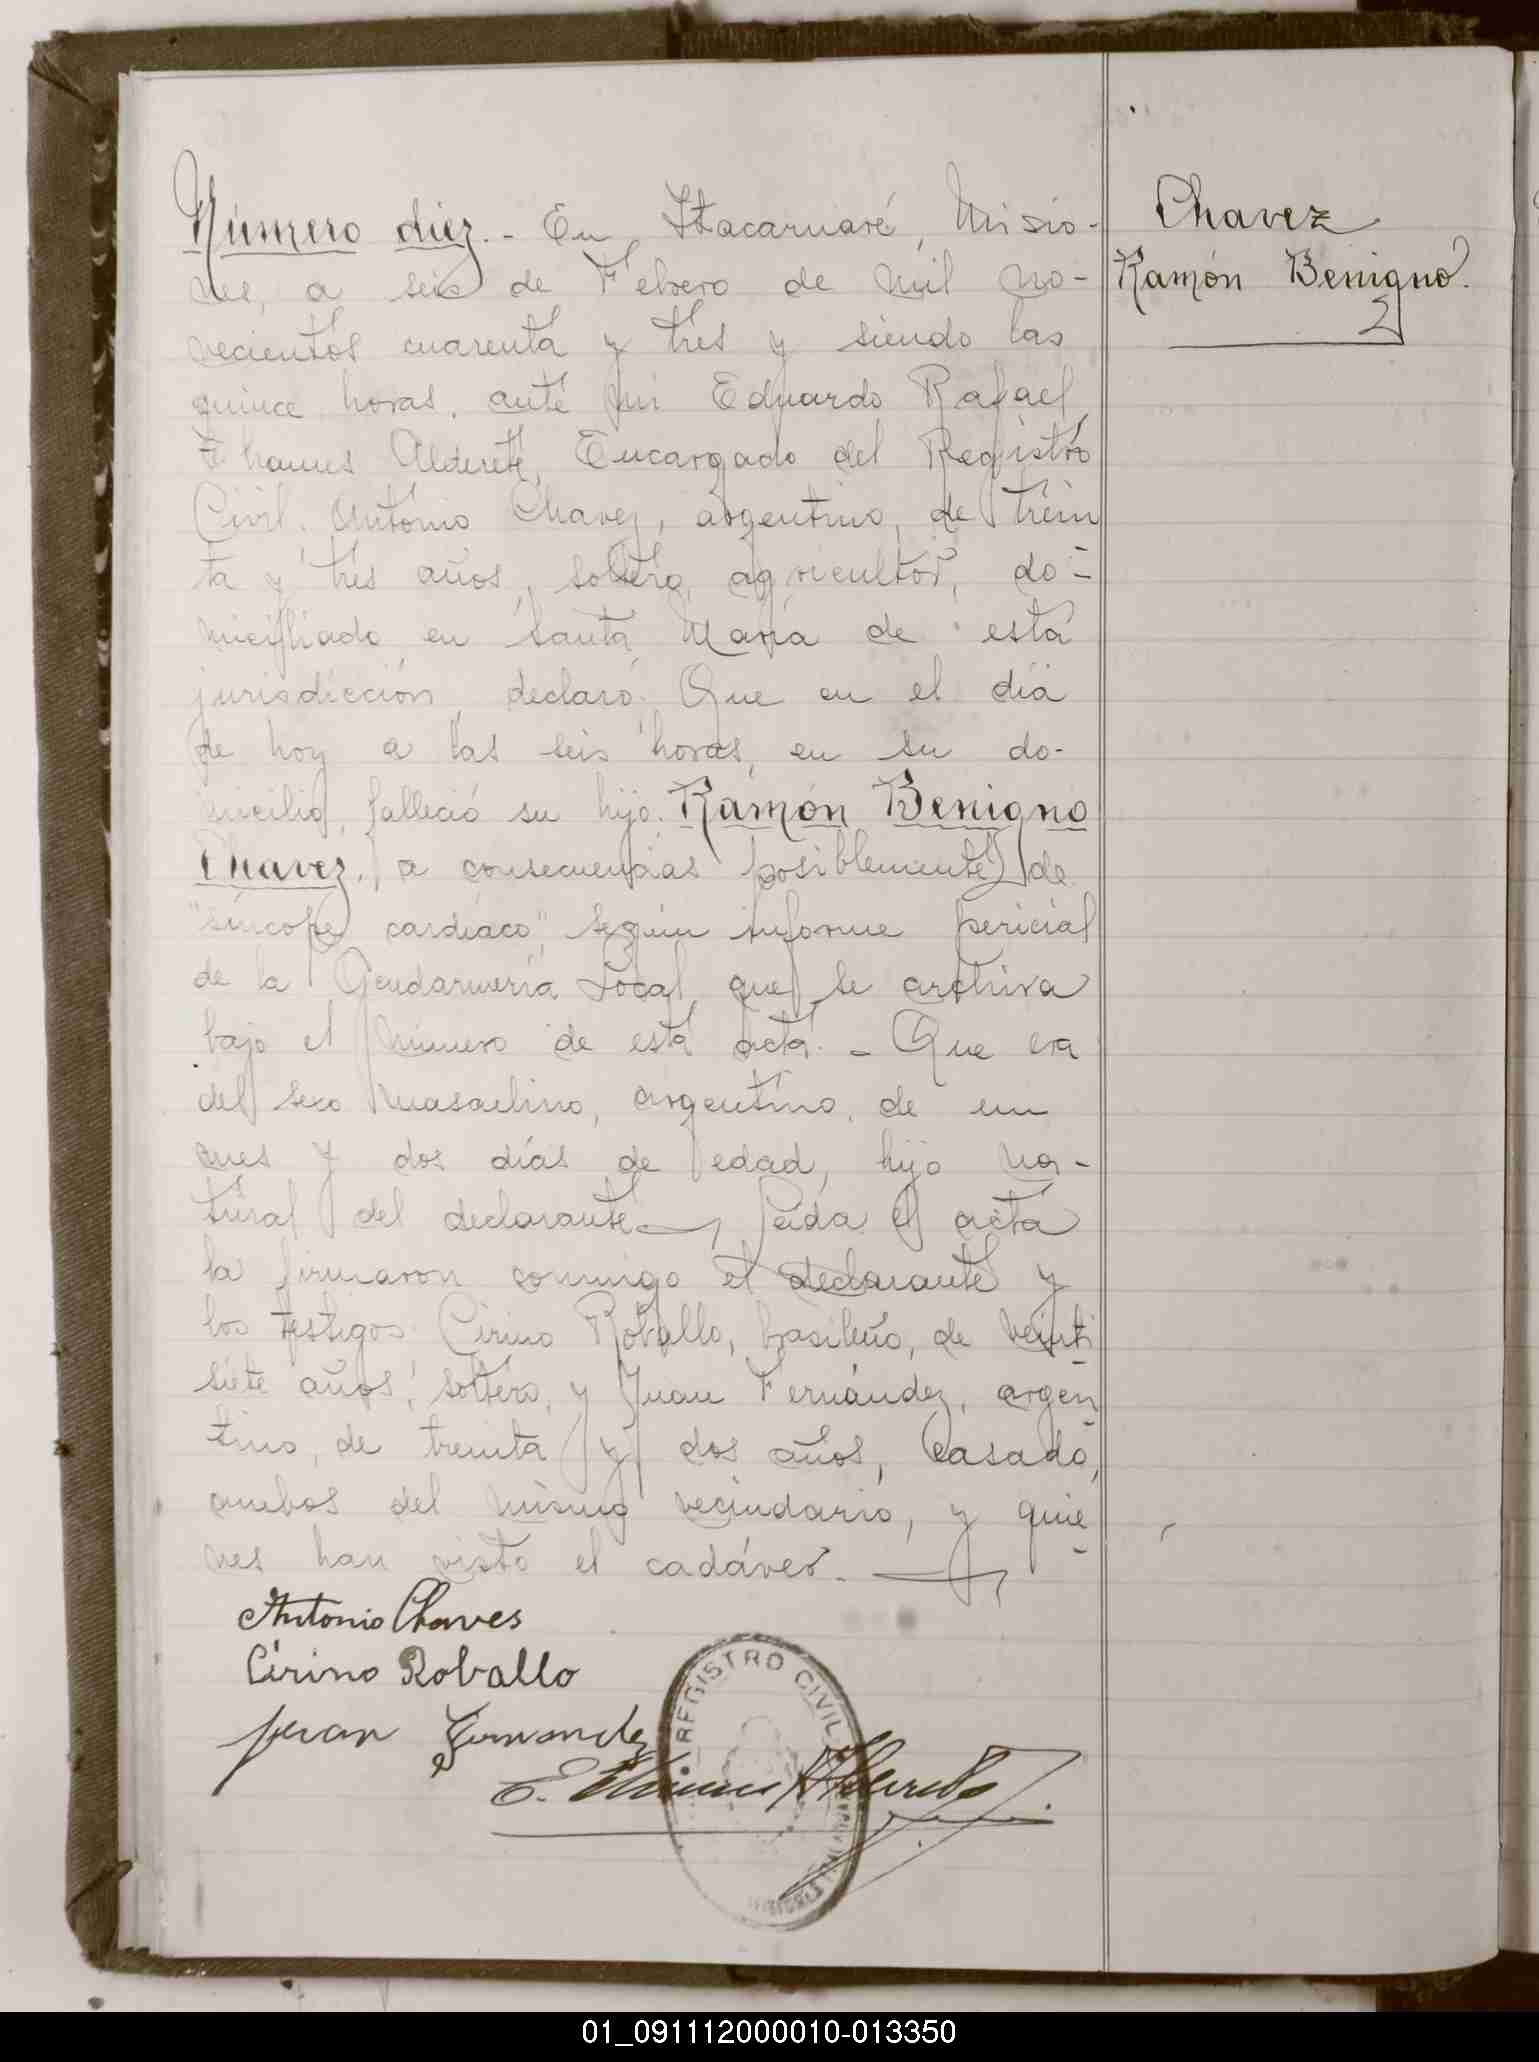 Número diez.- En Itacaruaré, Misio-
nes, a seis de Febrero de mil no-
vecientos cuarenta y tres y siendo las
quince horas, ante mi Eduardo Rafael
Thames Alderete, Encargado del Registro
Civil. Antonio Chavez, argentino, de trein
ta y tres años, soltero, agricultor, do-
miciliado en Santa María de esta
jurisdicción, declaró: Que en el día
de hoy a las seis horas, en su do-
micilio, falleció su hijo: Ramón Benigno
Chavez, a consecuencias posiblemente de
"síncope cardíaco", según informe pericial
de la Gendarmería Local, que se archiva
bajo el número de esta acta.- Que era
del sexo masculino, argentino, de un
mes y dos días de edad, hijo na-
tural del declarante. Leída el acta
la firmaron conmigo el declarante y
los testigos: Cirino Roballo, brasileño, de veinti
siete años, soltero, y Juan Fernández, argen
tino, de treinta y dos años, casado,
ambos del mismo vecindario, y quie
nes han visto el cadáver.-
Antonio Chaves
Cirino Roballo
Juan Fernandez
E. Thames Alderete
REGISTRO CIVIL
Chavez
Ramón Benigno.
01_091112000010-013350